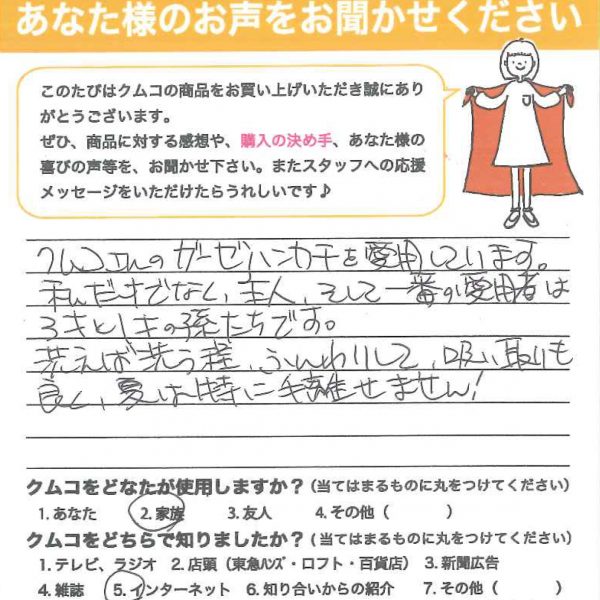 あなた様のお声をお聞かせください
このたびはクムコの商品をお買い上げいただき誠にあり
がとうございます。
ぜひ、商品に対する感想や、購入の決め手、あなた様の
喜びの声等を、お聞かせ下さい。またスタッフへの応援
メッセージをいただけたらうれしいです♪
クムコさんのガーゼハンカチを愛用しています。
私だけでなく、主人、そして一番の愛用者は
3才と1才の孫たちです。
洗えば洗う程、ふんわりして、吸い取りも
良く、夏は特に手離せません!
クムコをどなたが使用しますか？(当てはまるものに丸をつけてください)
1. あなた 2. 家族 3. 友人 4. その他 ( )
クムコをどちらで知りましたか？(当てはまるものに丸をつけてください)
1. テレビ、ラジオ 2. 店頭 (東急ハンズ・ロフト・百貨店) 3. 新聞広告
4. 雑誌 5. インターネット 6. 知り合いからの紹介 7. その他 ( )